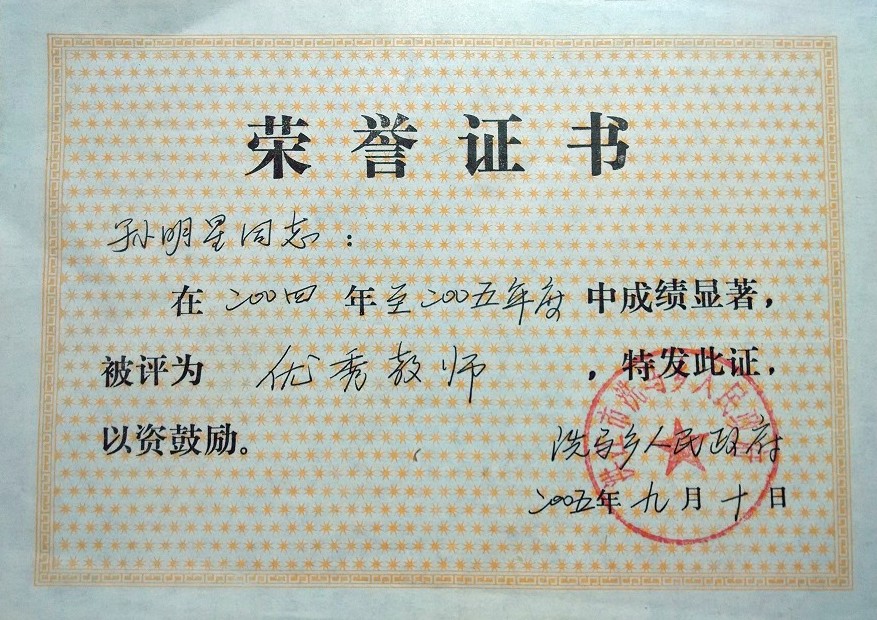 荣誉证书
孙明星同志：
在二00四年至二00五年度中成绩显著，
被评为优秀教师，特发此证，
以资鼓励。
洗马乡人民政府
二00五年九月十日
洪江市洗马乡人民政府